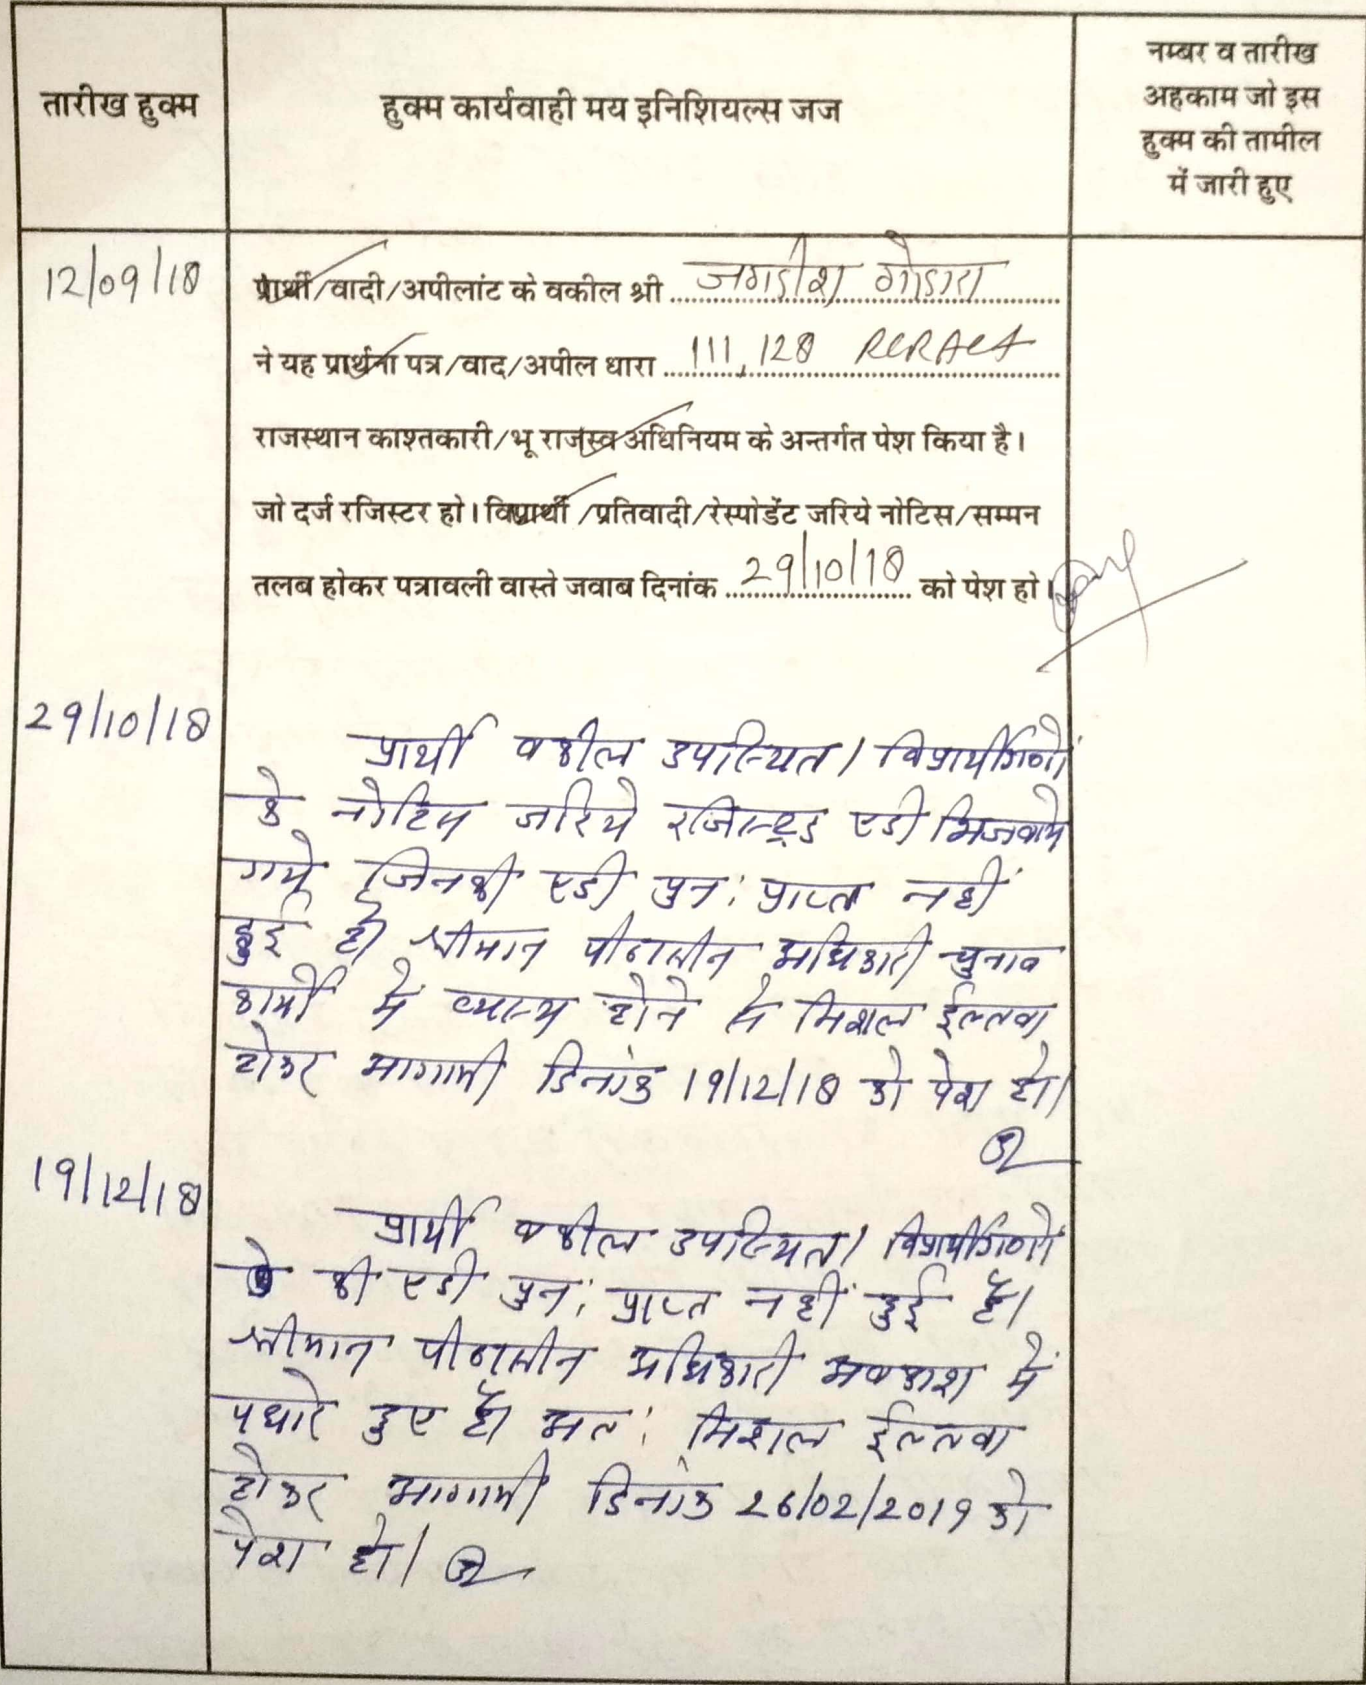 तारीख हुक्म
हुक्म कार्यवाही मय इनिशियल्स जज
नम्बर व तारीख
अहकाम जो इस
हुक्म की तामील
में जारी हुए
12/09/18
प्रार्थी/वादी/अपीलांट के वकील श्री जगदीश गोदारा
ने यह प्रार्थना पत्र/वाद/अपील धारा 111, 128
राजस्थान काश्तकारी/भू राजस्व अधिनियम के अन्तर्गत पेश किया है।
जो दर्ज रजिस्टर हो। विप्रार्थी/प्रतिवादी/रेस्पोडेंट जरिये नोटिस/सम्मन
तलब होकर पत्रावली वास्ते जवाब दिनांक 29/10/18 को पेश हो।
29/10/18
प्रार्थी वकील उपस्थित। विप्रार्थीगणों
के नोटिस जरिये रजिस्ट्रड एडी भिजवाये
गये जिनकी एडी पुन: प्राप्त नहीं
हुई है। श्रीमान पीठासीन अधिकारी चुनाव
कार्यों में व्यस्थ होने से मिशल ईल्तवा
होकर आगामी दिनांक 19/12/18 को पेश हो।
19/12/18
प्रार्थी वकील उपस्थित। विप्रार्थीगणों
की एडी पुन: प्राप्त नहीं हुई है।
श्रीमान पीठासीन अधिकारी अवकाश में
पधारे हुए है। अत: मिशल ईल्तवा
होकर आगामी दिनांक 26/02/2019 को
पेश हो।